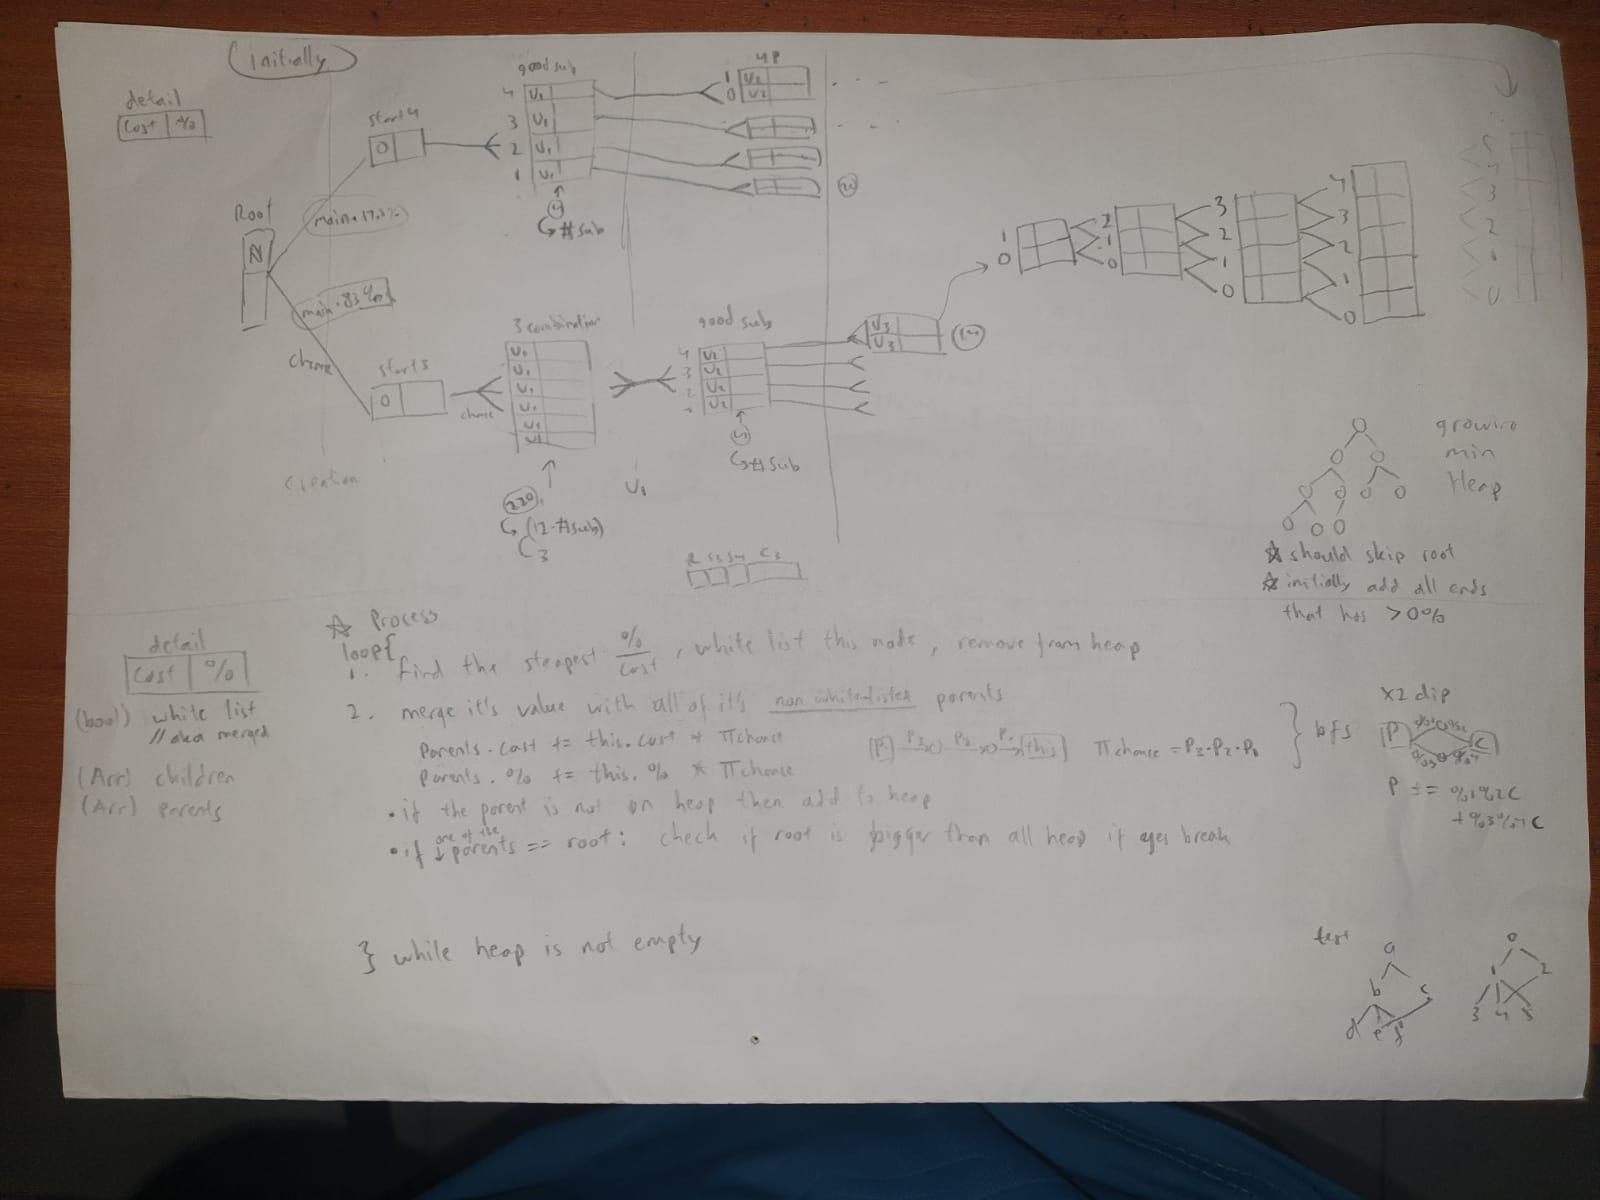 (initially)
detail
Cost | %
start 4
0
good sub
4 U₁
3 U₁
2 U₁
1 U₁
4
↳ #sub
4P
1 U₂
0 U₂
. - -
Root
N
main
main
chance
Creation
start 3
0
chance
3 combination
U₁
U₁
U₁
U₁
U₁
U₁
220
↳ (12-#sub)
C₃
U₁
good sub
4 U₂
3 U₂
2 U₂
U₂
↳ #sub
U₃
U₃
1
0
2
1
0
3
2
1
0
4
3
2
1
0
3
2
growing
min
Heap
☆ should skip root
☆ initially add all ends
that has >0%
detail
Cost | %
(bool) white list
// aka merged
(Arr) children
(Arr) parents
☆ Process
loop{
1. find the steapest %/cost, white list this node, remove from heap
2. merge it's value with all of it's non whitelisted parents
Parents.cost += this.cost * πchance
Parents.% += this.% * πchance
[P] P₃ P₂ P₁ [this] πchance = P₃·P₂·P₁ } bfs
• if the parent is not on heap then add to heap
• if one of the ↓ parents == root: check if root is bigger than all heap if yes break
} while heap is not empty
x2 dip
P C
P += %1%2C
+%3%4C
test
a
b c
d e f
0
1 2
3 4 5